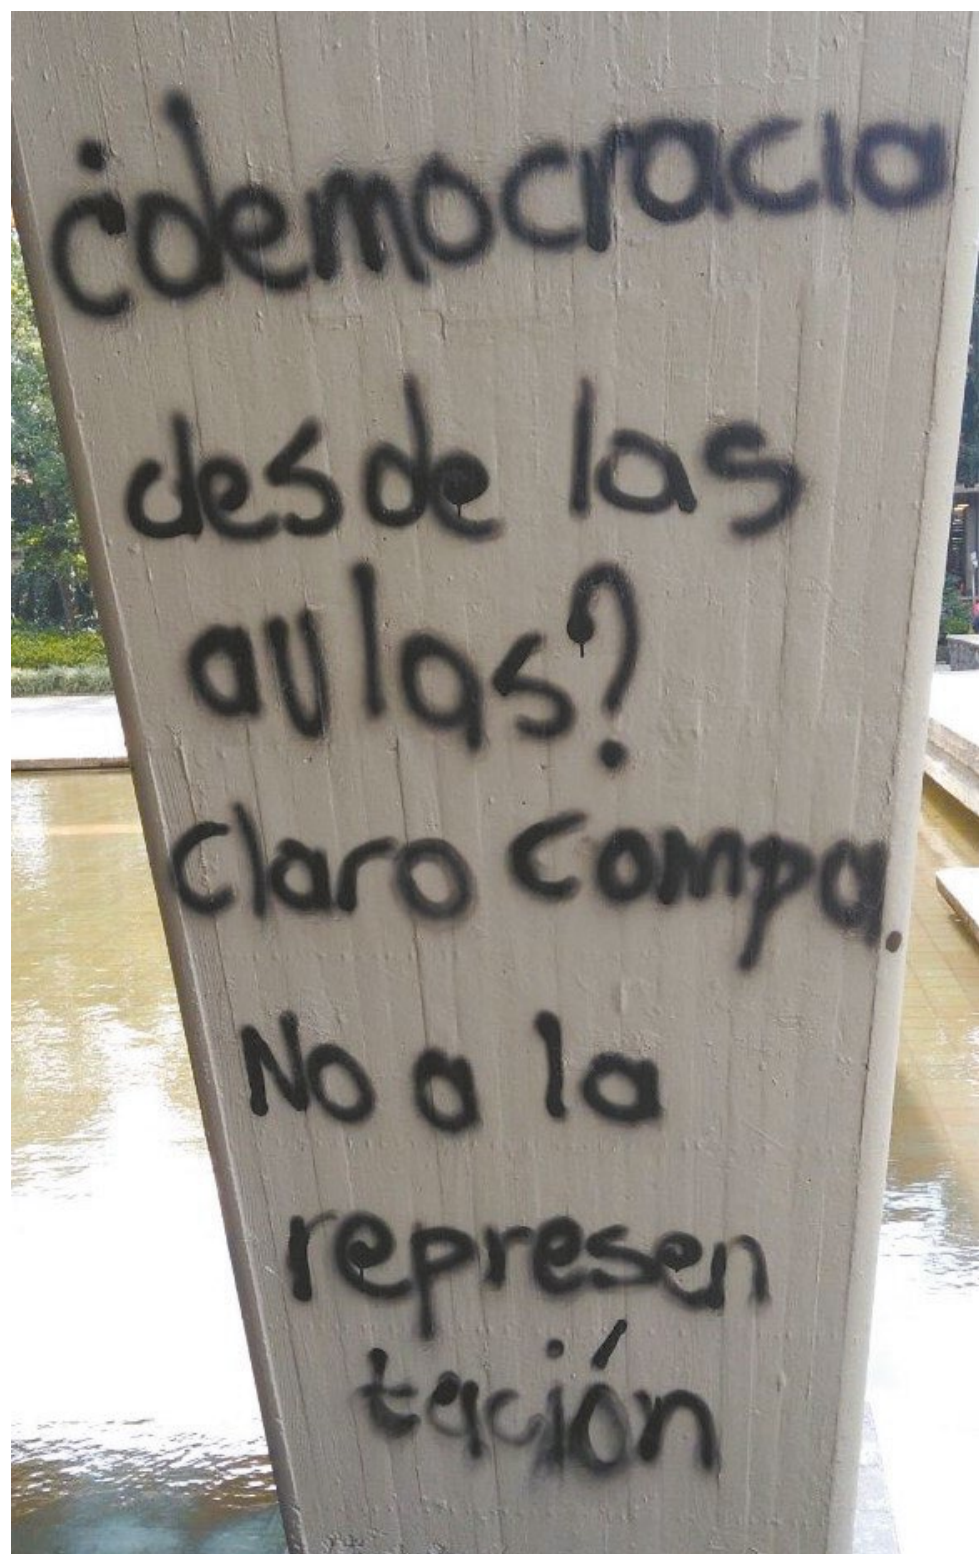 ¿democracia
desde las
aulas?
Claro compa.
No a la
represen
tación